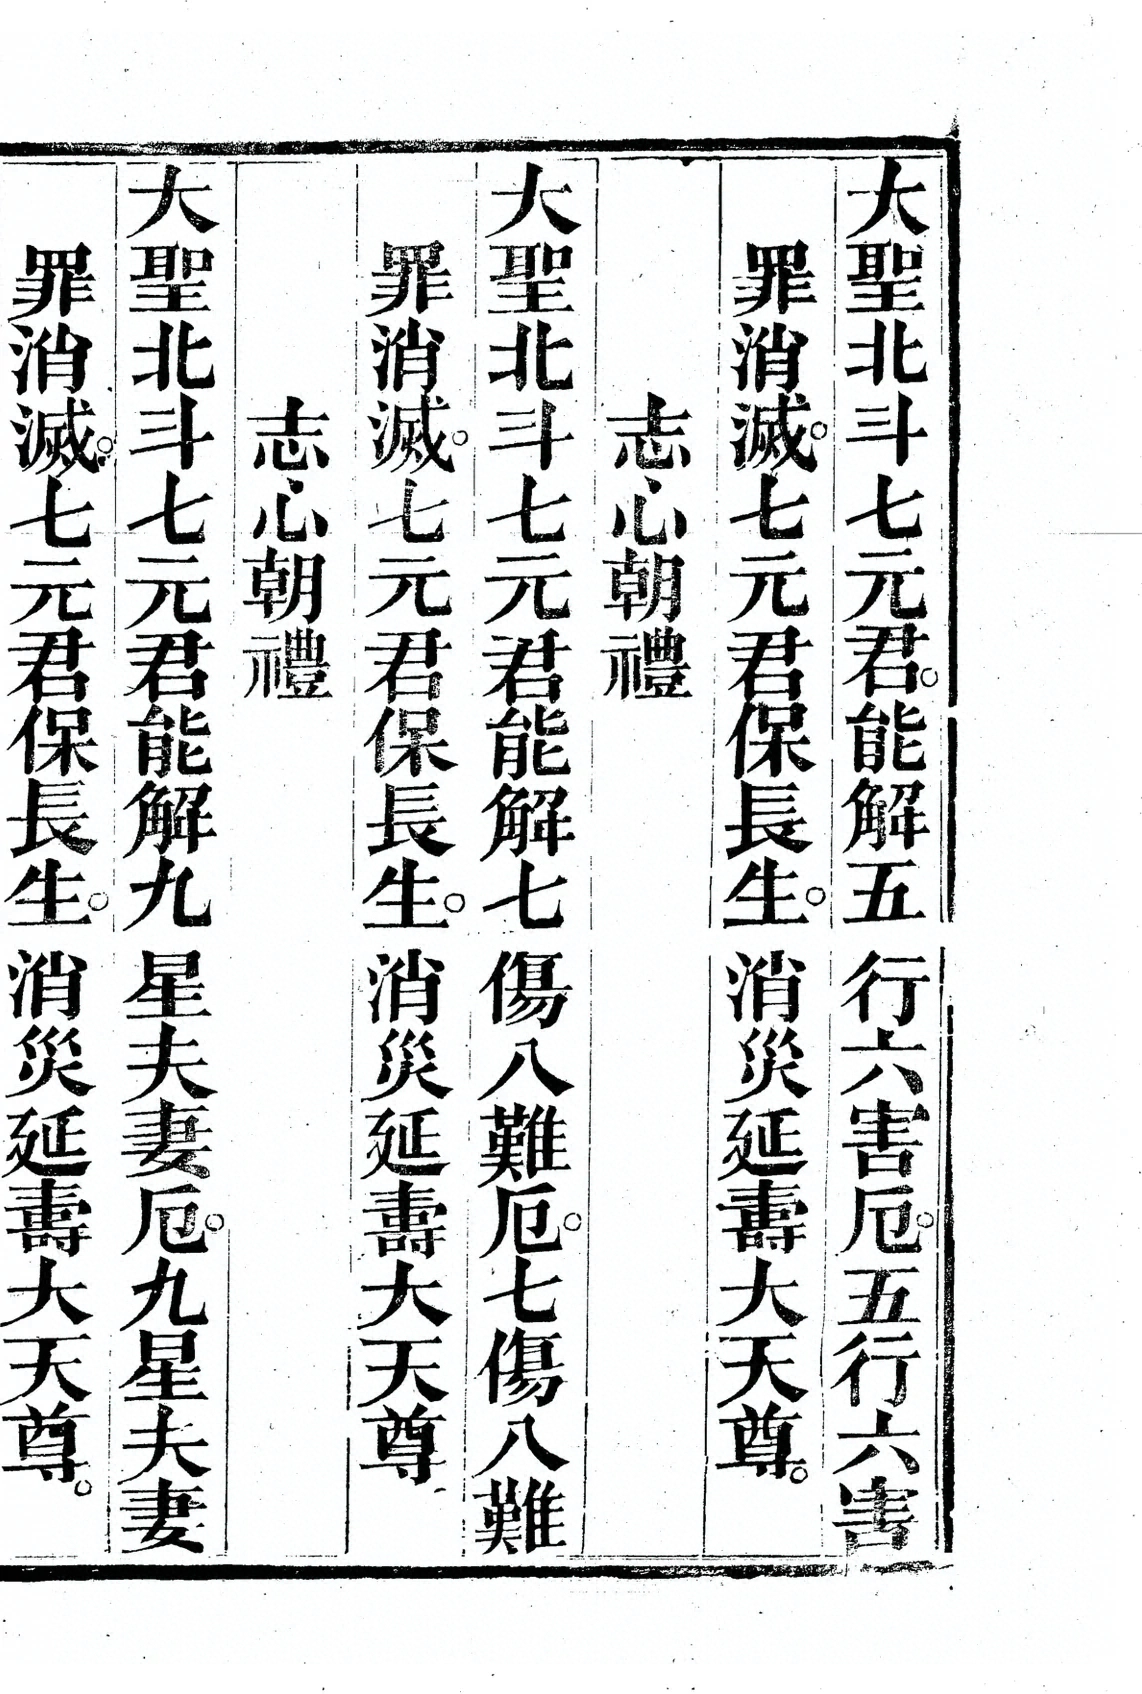 大聖北斗七元君。能解五行六害厄。五行六害
罪消滅。七元君保長生。消災延壽大天尊。
志心朝禮
大聖北斗七元君能解七傷八難厄。七傷八難
罪消滅。七元君保長生。消災延壽大天尊
志心朝禮
大聖北斗七元君能解九星夫妻厄。九星夫妻
罪消滅。七元君保長生。消災延壽大天尊。